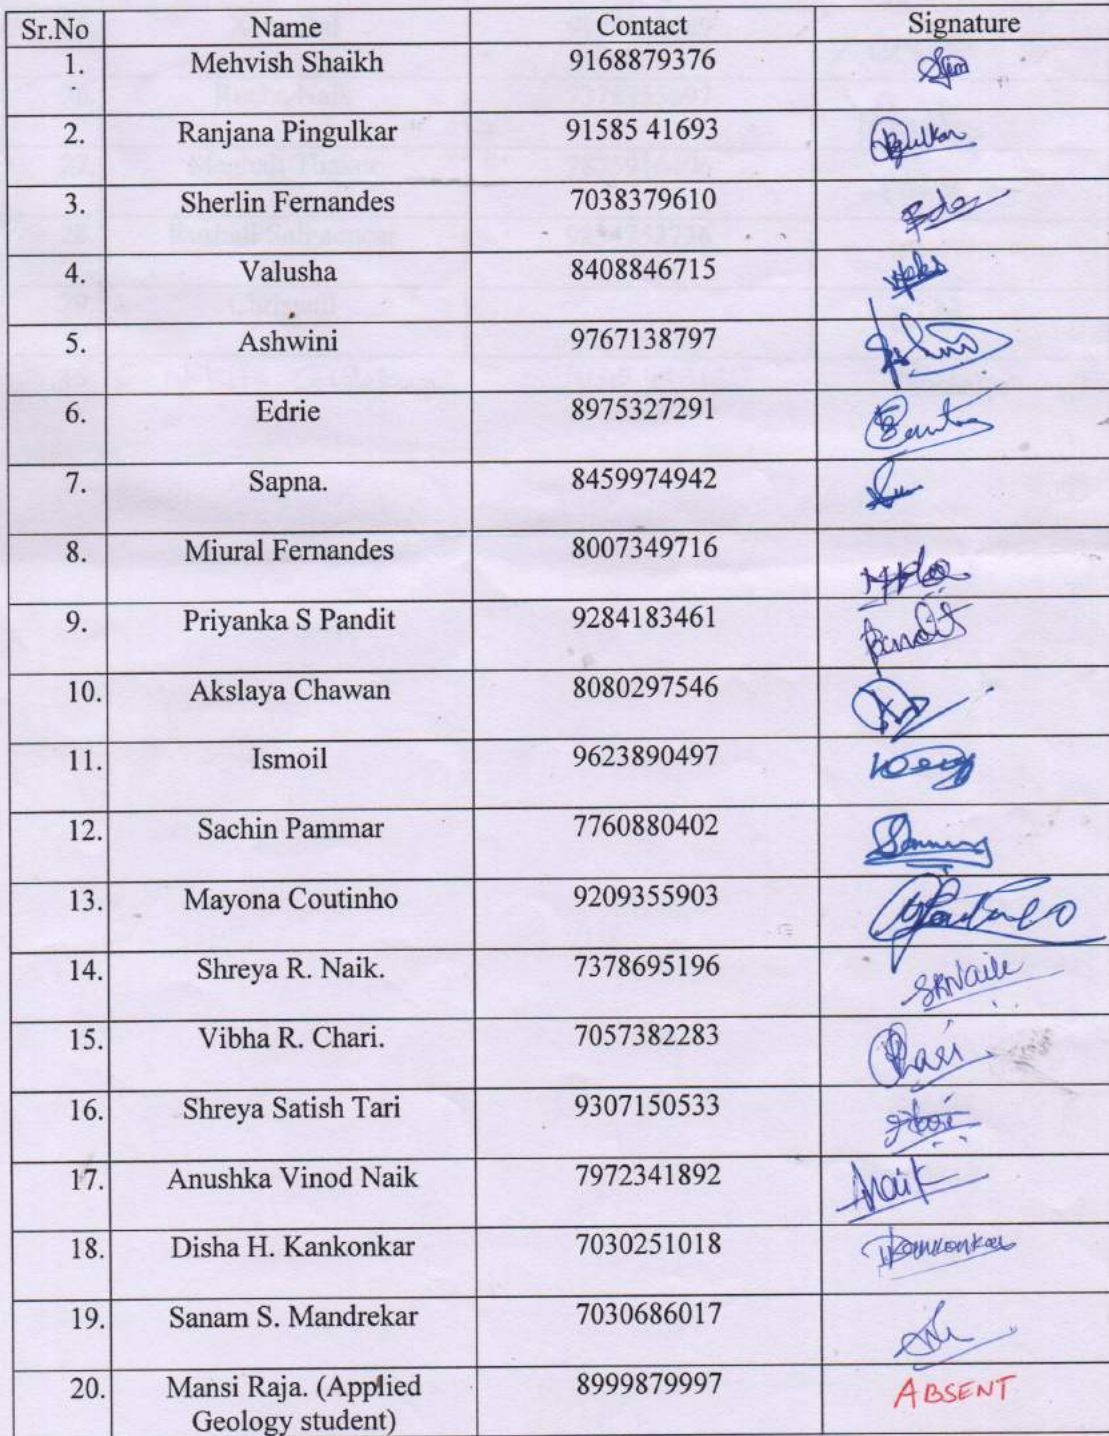 Sr.No Name Contact Signature
1. Mehvish Shaikh 9168879376
2. Ranjana Pingulkar 91585 41693
3. Sherlin Fernandes 7038379610
4. Valusha 8408846715
5. Ashwini 9767138797
6. Edrie 8975327291
7. Sapna. 8459974942
8. Miural Fernandes 8007349716
9. Priyanka S Pandit 9284183461
10. Akslaya Chawan 8080297546
11. Ismoil 9623890497
12. Sachin Pammar 7760880402
13. Mayona Coutinho 9209355903
14. Shreya R. Naik. 7378695196 SRNaik
15. Vibha R. Chari. 7057382283
16. Shreya Satish Tari 9307150533
17. Anushka Vinod Naik 7972341892 Anaik
18. Disha H. Kankonkar 7030251018 DKankonkar
19. Sanam S. Mandrekar 7030686017
20. Mansi Raja. (Applied 8999879997 ABSENT
Geology student)